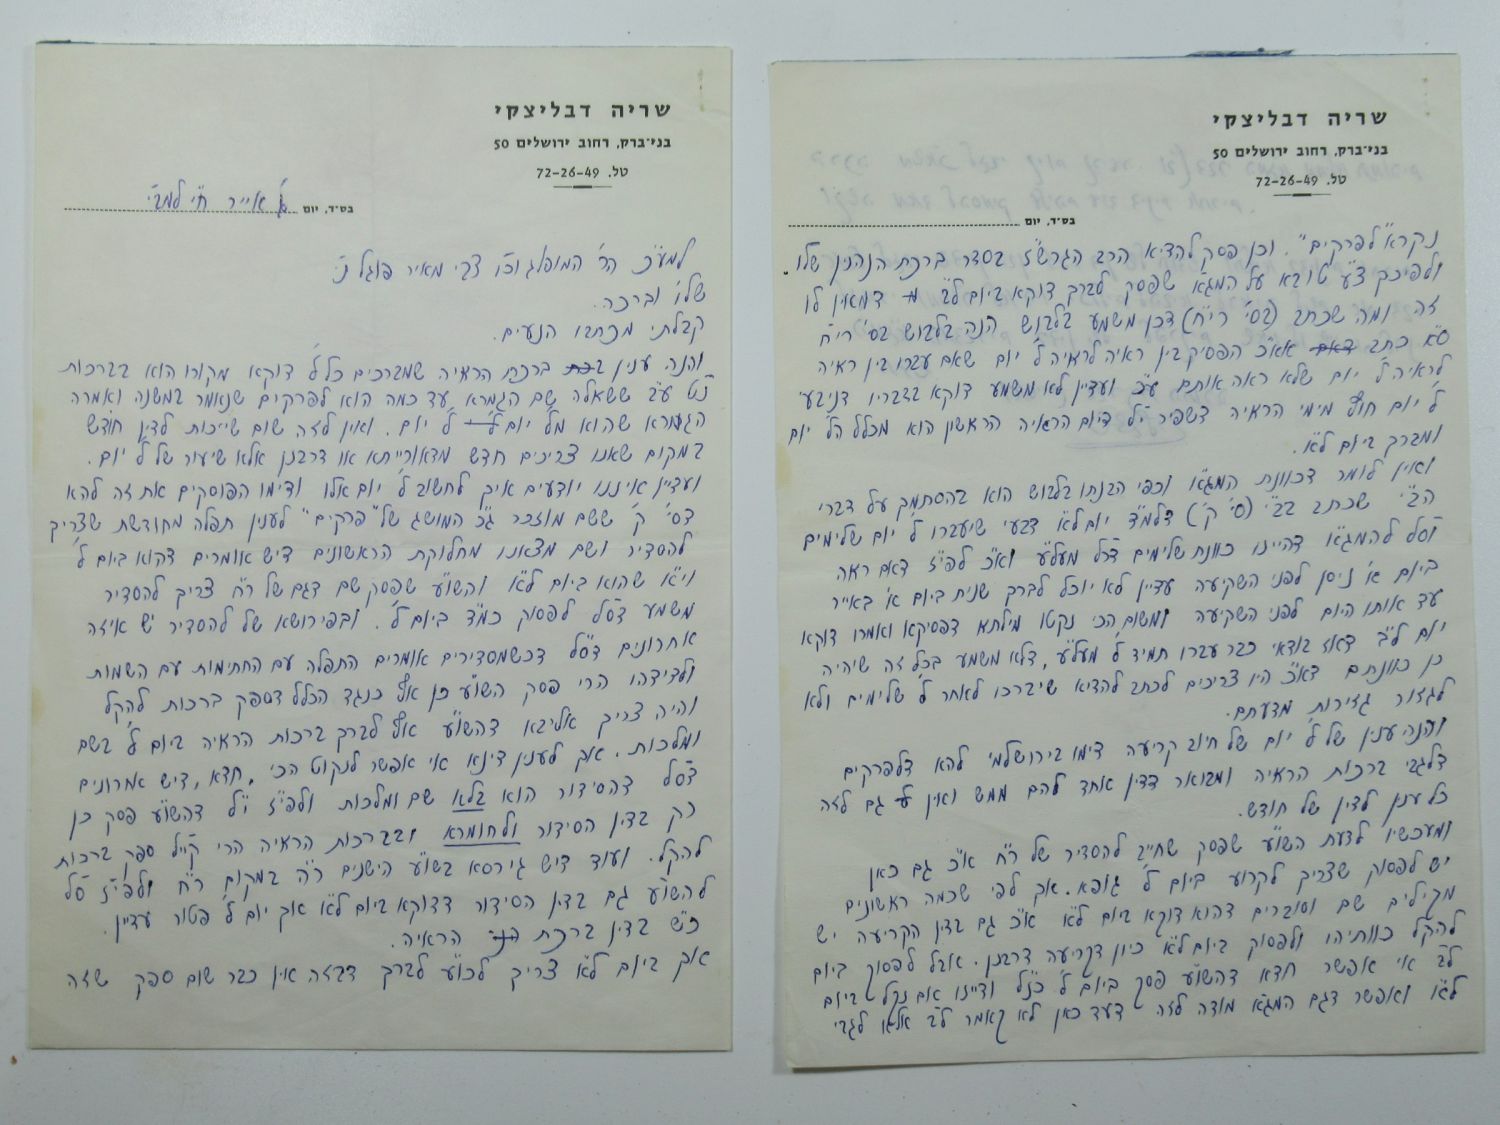 שריה דבליצקי
בני־ברק, רחוב ירושלים 50
טל. 72-26-49
בס״ד, יום אייר ח״י למבי
למע״כ הר׳ המופלג וכו׳ צבי מאיר פוגל נ״י
שלו׳ וברכה.
קבלתי מכתבו הנעים.
והנה ענין ברכת הראיה שמברכים כל ל׳ דוקא מקורו הוא בברכות
נ״ט ע״ב ששאלה שם הגמרא עד כמה הוא לפרקים שנאמר במשנה ואמרה
הגמרא שהוא מל׳ יום ל׳ יום. ואין לזה שום שייכות לדין חודש
במקום שאנו צריכים חדש מדאורייתא או דרבנן אלא שיעור של ל׳ יום.
ועדיין איננו יודעים איך לחשוב ל׳ יום אלו ודימו הפוסקים את זה להא
דסי׳ ק׳ ששם מוזכר ג״כ המושג של ״פרקים״ לענין תפלה מחודשת שצריך
להסדיר ושם מצאנו מחלוקת הראשונים דיש אומרים דהוא ביום ל׳
וי״א שהוא ביום ל״א והשו״ע שפסק שם דגם של ר״ח צריך להסדיר
משמע דס״ל לפסוק כמ״ד ביום ל׳. ובפירושא של להסדיר יש איזה
אחרונים דס״ל דכשמסדירים אומרים התפלה עם החתימות עם השמות
ולדידהו הרי פסק השו״ע כן אף כנגד הכלל דספק ברכות להקל
והיה צריך אליבא דהשו״ע אף לברך ברכות הראיה ביום ל׳ בשם
ומלכות. אך לענין דינא אי אפשר לנקוט הכי, חדא, דיש אחרונים
דס״ל דהסידור הוא בלא שם ומלכות ולפ״ז י״ל דהשו״ע פסק כן
רק בדין הסידור ולחומרא ובברכות הראיה הרי קי״ל ספק ברכות
להקל. ועוד דיש גירסא בשו״ע הישנים ר״ה במקום ר״ח ולפי״ז ס״ל
להשו״ע גם בדין הסידור דדוקא ביום ל״א אך יום ל׳ פטור עדיין.
כ״ש בדין ברכת הראיה.
אך ביום ל״א צריך לכו״ע לברך דבזה אין כבר שום ספק שזה
שריה דבליצקי
בני־ברק, רחוב ירושלים 50
טל. 72-26-49
בס״ד, יום
נקרא ״לפרקים״. וכן פסק להדיא הרב הגרש״ז בסדר ברכת הנהנין שלו
ולפיכך צ״ע טובא על המג״א שפסק לברך דוקא ביום ל״ב דמאין לו
זה ומה שכתב (בסי׳ רי״ח) דכן משמע בלבוש הנה בלבוש בסי׳ רי״ח
ס״א כתב אא״כ הפסיק בין ראיה לראיה ל׳ יום שאם עברו בין ראיה
לראיה ל׳ יום שלא ראה אותם ע״כ ועדיין לא משמע דוקא בדבריו דניבעי
ל׳ יום חוץ מימי הראיה דשפיר י״ל דיום הראיה הראשון הוא מכלל הל׳ יום
ומברך ביום ל״א.
ואין לומר דכוונת המג״א וכפי הבנתו בלבוש הוא בהסתמך על דברי
הב״י שכתב בב״י (סי׳ ק׳) דלמ״ד יום ל״א דבעי שיעברו ל׳ יום שלימים
וס״ל להמג״א דהיינו כוונת שלימים דר״ל מעל״ע וא״כ לפי״ז דאם ראה
ביום א׳ ניסן לפני השקיעה עדיין לא יוכל לברך שנית ביום א׳ באייר
עד אותו היום לפני השקיעה ומשום הכי נקטו מילתא דפסיקא ואמרו דוקא
יום ל״ב דאז בודאי כבר עברו תמיד ל׳ מעל״ע, דלא משמע בכל זה שיהיה
כן כוונתם דא״כ היו צריכים לכתב להדיא שיברכו לאחר ל׳ שלימים ולא
לגזור גזירות מדעתם.
והנה ענין של ל׳ יום של חיוב קריעה דימו בירושלמי להא דלפרקים
דלגבי ברכות הראיה ומבואר דדין אחד להם ממש ואין גם לזה
כל ענין לדין של חודש.
ומעכשיו לדעת השו״ע שפסק שחייב להסדיר של ר״ח א״כ גם כאן
יש לפסוק שצריך לקרוע ביום ל׳ גופא. אך לפי שכמה ראשונים
מקילים שם וסוברים דהוא דוקא ביום ל״א א״כ גם בדין הקריעה יש
להקל כוותיהו ולפסוק ביום ל״א כיון דקריעה דרבנן. אבל לפסוק ביום
ל״ב אי אפשר חדא דהשו״ע פסק ביום ל׳ כנ״ל ודיינו אם נקל ביום
ל״א ואפשר דגם המג״א מודה לזה דעד כאן לא קאמר ל״ב אלא לגבי